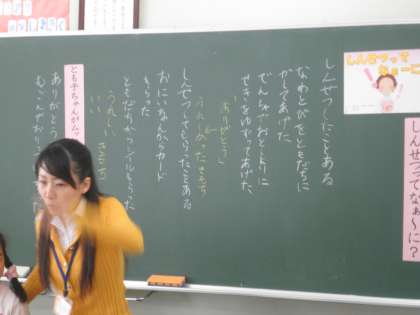 しんせつって
なぁーに
しんせつってなぁ〜に?
しんせつしたことある
なわとびをともだちに
かしてあげた
でんしゃでおとしよりに
せきをゆずってあげた
ありがとう
うれしかったきもち
しんせつしてもらったことある
おにいさんからカード
もらった
ともだちがシールをもらった
うれしい
きもち
いい
とも子ちゃんが
ありがとう